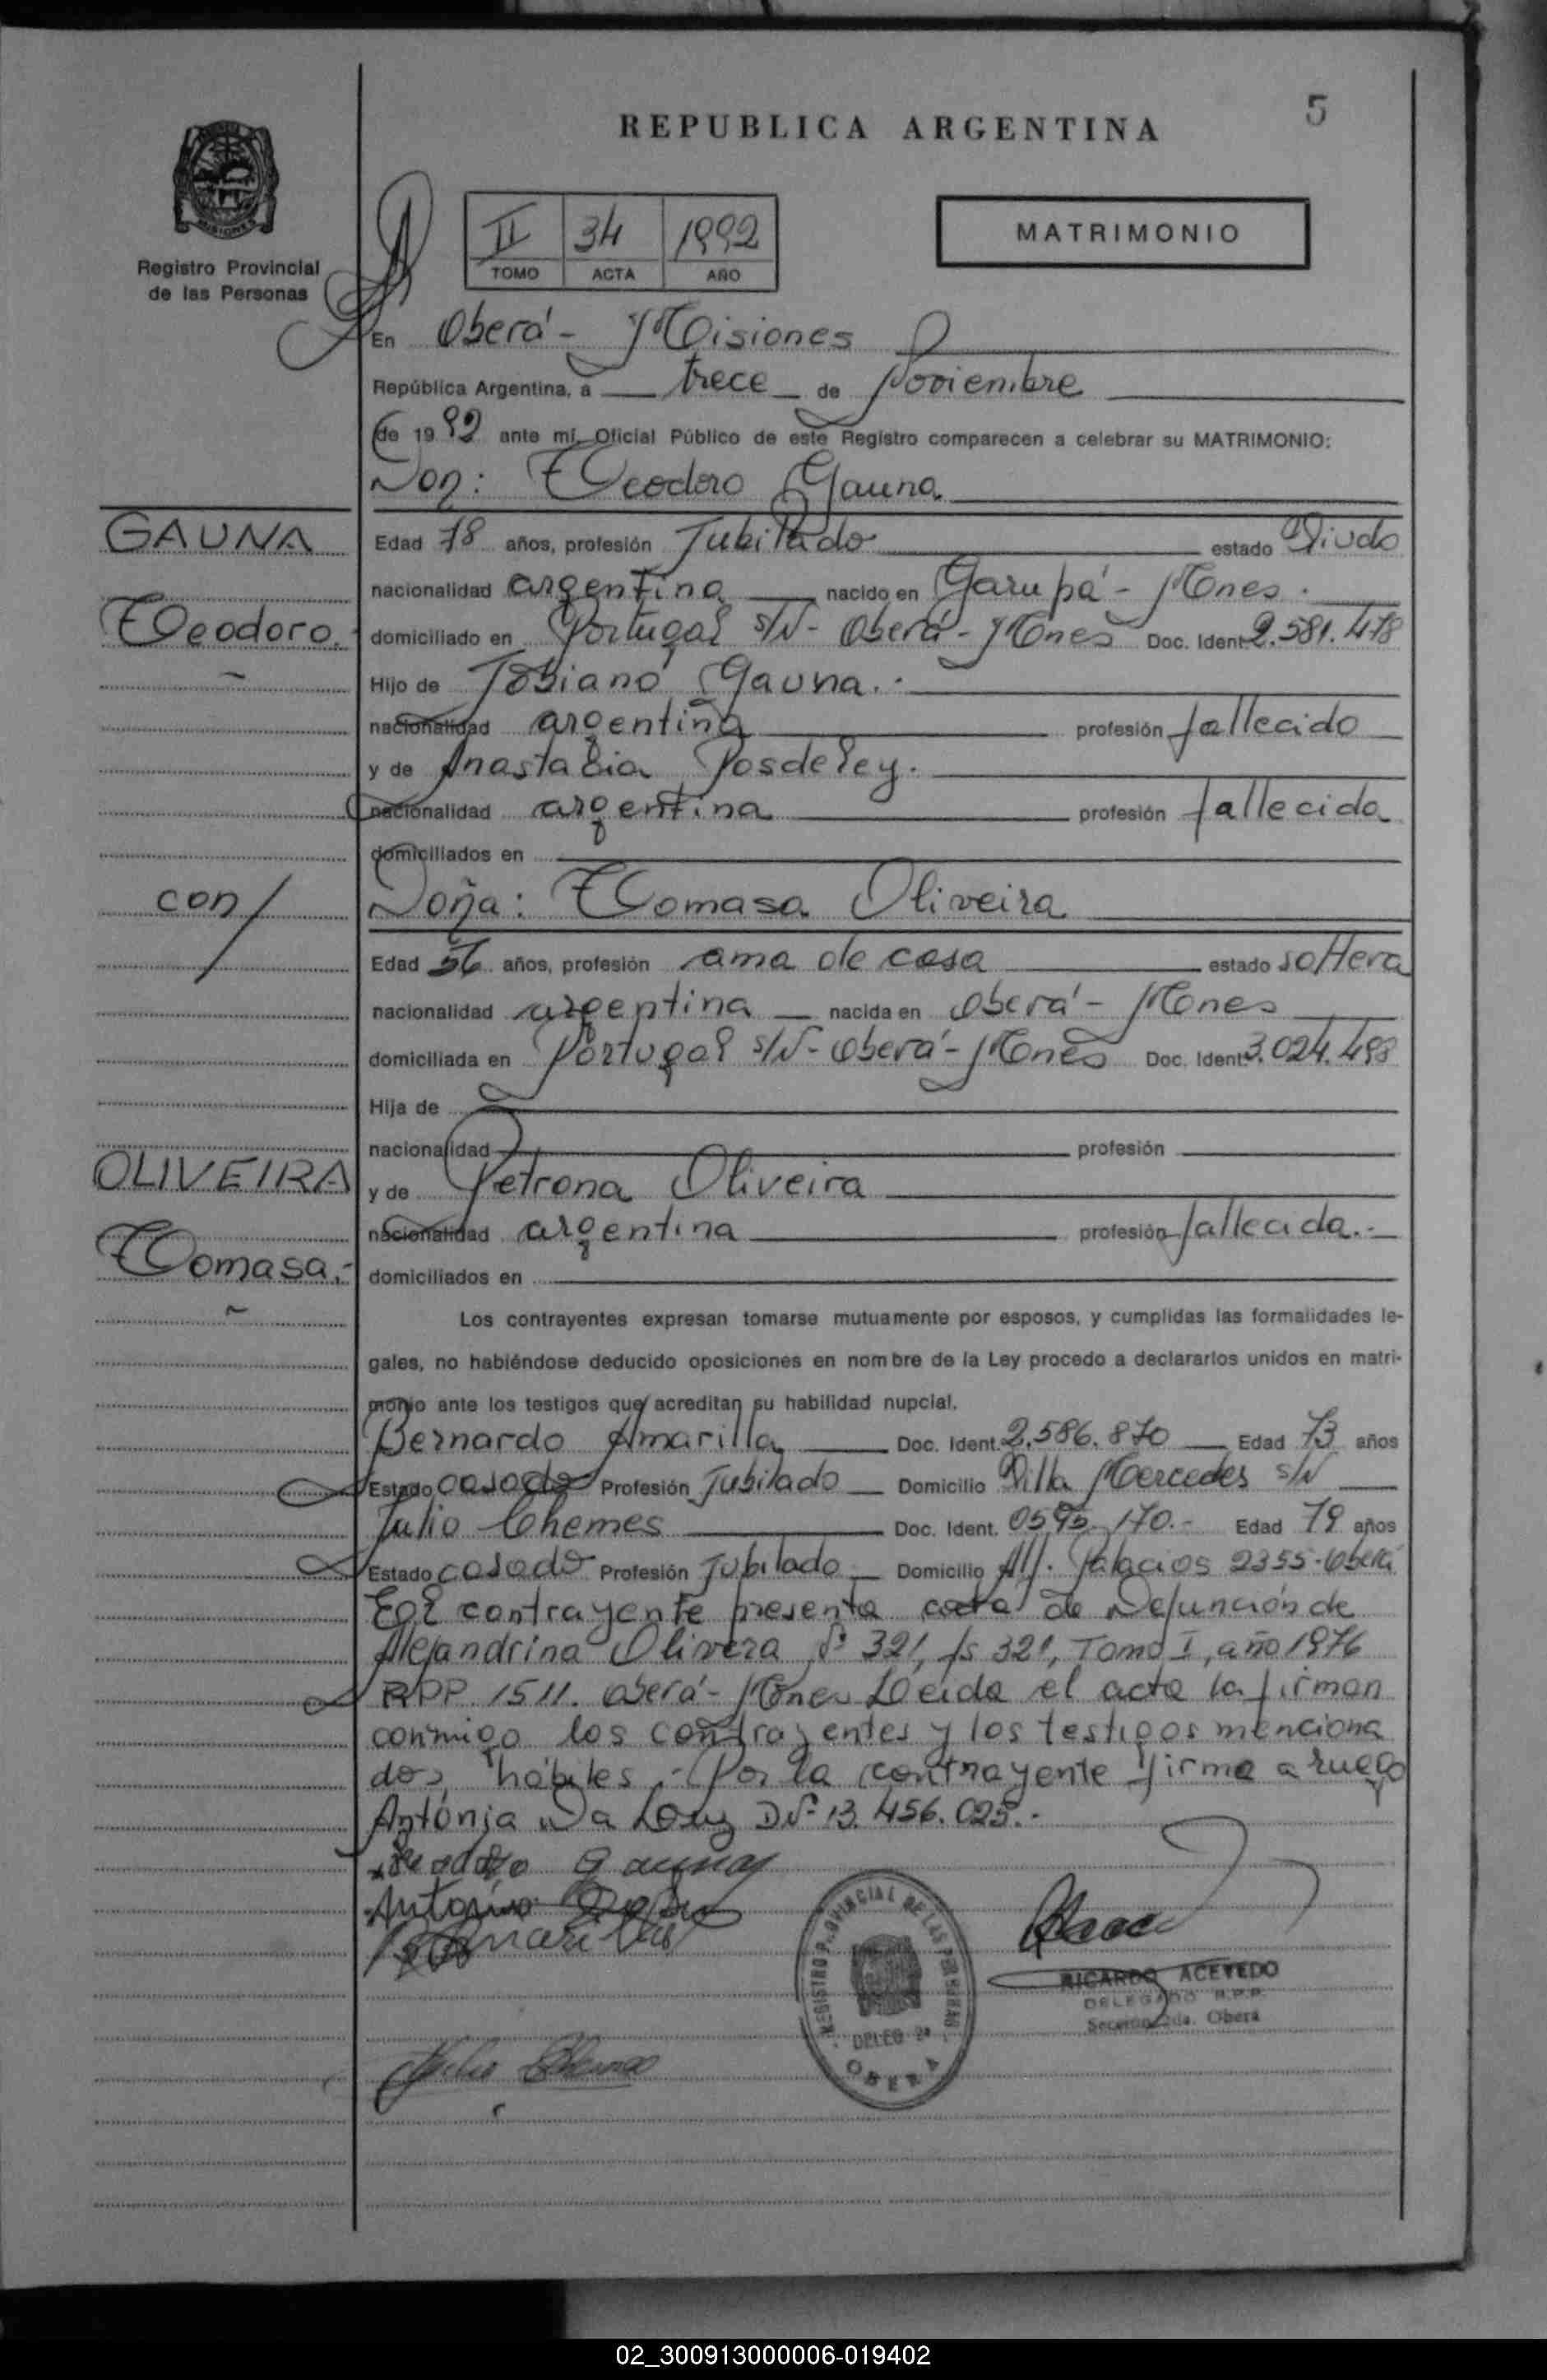 5
REPUBLICA ARGENTINA
MISIONES
Registro Provincial
de las Personas
II 34 1992
TOMO ACTA AÑO
MATRIMONIO
En Oberá - Misiones
República Argentina, a trece de Noviembre
de 1992 ante mí, Oficial Público de este Registro comparecen a celebrar su MATRIMONIO:
Don: Teodoro Gauna
GAUNA
Teodoro.-
con/
OLIVEIRA
Tomasa.-
Edad 78 años, profesión Jubilado estado Viudo
nacionalidad argentina nacido en Garupá - Mones.
domiciliado en Portugal s/N - Oberá - Mones Doc. Ident. 2.581.478
Hijo de Gauna.-
nacionalidad argentina profesión fallecido
y de Anastasia Posdeley.
nacionalidad argentina profesión fallecida
domiciliados en
Doña: Tomasa Oliveira
Edad 56 años, profesión ama de casa estado soltera
nacionalidad argentina nacida en Oberá - Mones
domiciliada en Portugal s/N - Oberá - Mones Doc. Ident. 3.024.498
Hija de
nacionalidad profesión
y de Petrona Oliveira
nacionalidad argentina profesión fallecida.-
domiciliados en
Los contrayentes expresan tomarse mutuamente por esposos, y cumplidas las formalidades le-
gales, no habiéndose deducido oposiciones en nombre de la Ley procedo a declararlos unidos en matri-
monio ante los testigos que acreditan su habilidad nupcial.
Bernardo Amarilla Doc. Ident. 2.586.870 Edad 73 años
Estado casado Profesión Jubilado Domicilio Villa Mercedes s/N
Julio Chemes Doc. Ident. 0595.170.- Edad 79 años
Estado casado Profesión Jubilado Domicilio Alf. Palacios 2355 - Oberá
El contrayente presenta acta de Defunción de
Alejandrina Olivera Nº 321, fs 321, Tomo I, año 1976
RPP 1511. Oberá - Mones Leida el acta la firman
conmigo los contrayentes y los testigos menciona
dos, hábiles.- Por la contrayente firma a ruego
Antonia Da Luz DNº 13.456.025.-
Teodoro Gauna
Antonia
B Amarilla
Julio Chemes
REGISTRO PROVINCIAL DE LAS PERSONAS
DELEG. 2ª
OBERA
RICARDO ACEVEDO
DELEGADO R.P.P.
Sección 2da. Oberá
02_300913000006-019402